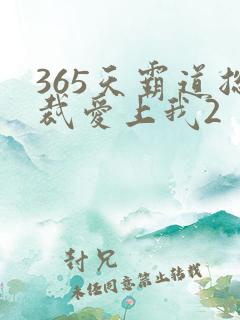 365天霸道总
裁爱上我2
封兄
未经同意禁止转载